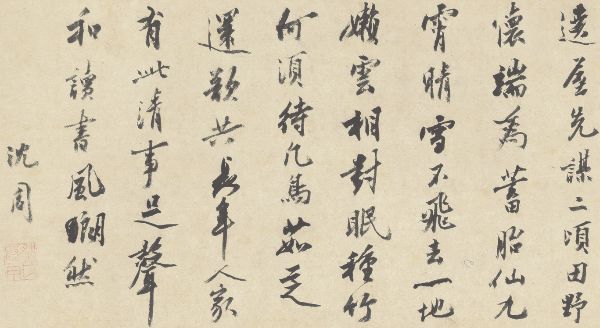 遶屋先謀二頃田野
懷端為蓄胎仙九
霄晴雪不飛去一地
嬾雲相對眠種竹
何須待凡鳥茹芝
還共長年人家
有此清事足聲
和讀書風瑯然
沈周